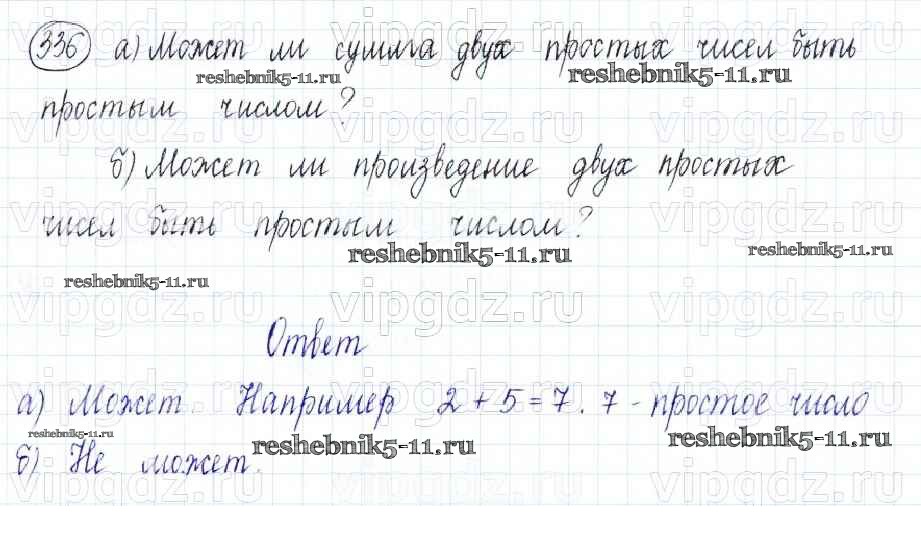 336 а) Может ли сумма двух простых чисел быть
reshebnik5-11.ru reshebnik5-11.ru
простым числом?
б) Может ли произведение двух простых
чисел быть простым числом?
reshebnik5-11.ru reshebnik5-11.ru
reshebnik5-11.ru
Ответ
а) Может. Например 2 + 5 = 7. 7 - простое число
reshebnik5-11.ru reshebnik5-11.ru reshebnik5-11.ru
б) Не может.
vipgdz.ru vipgdz.ru vipgdz.ru